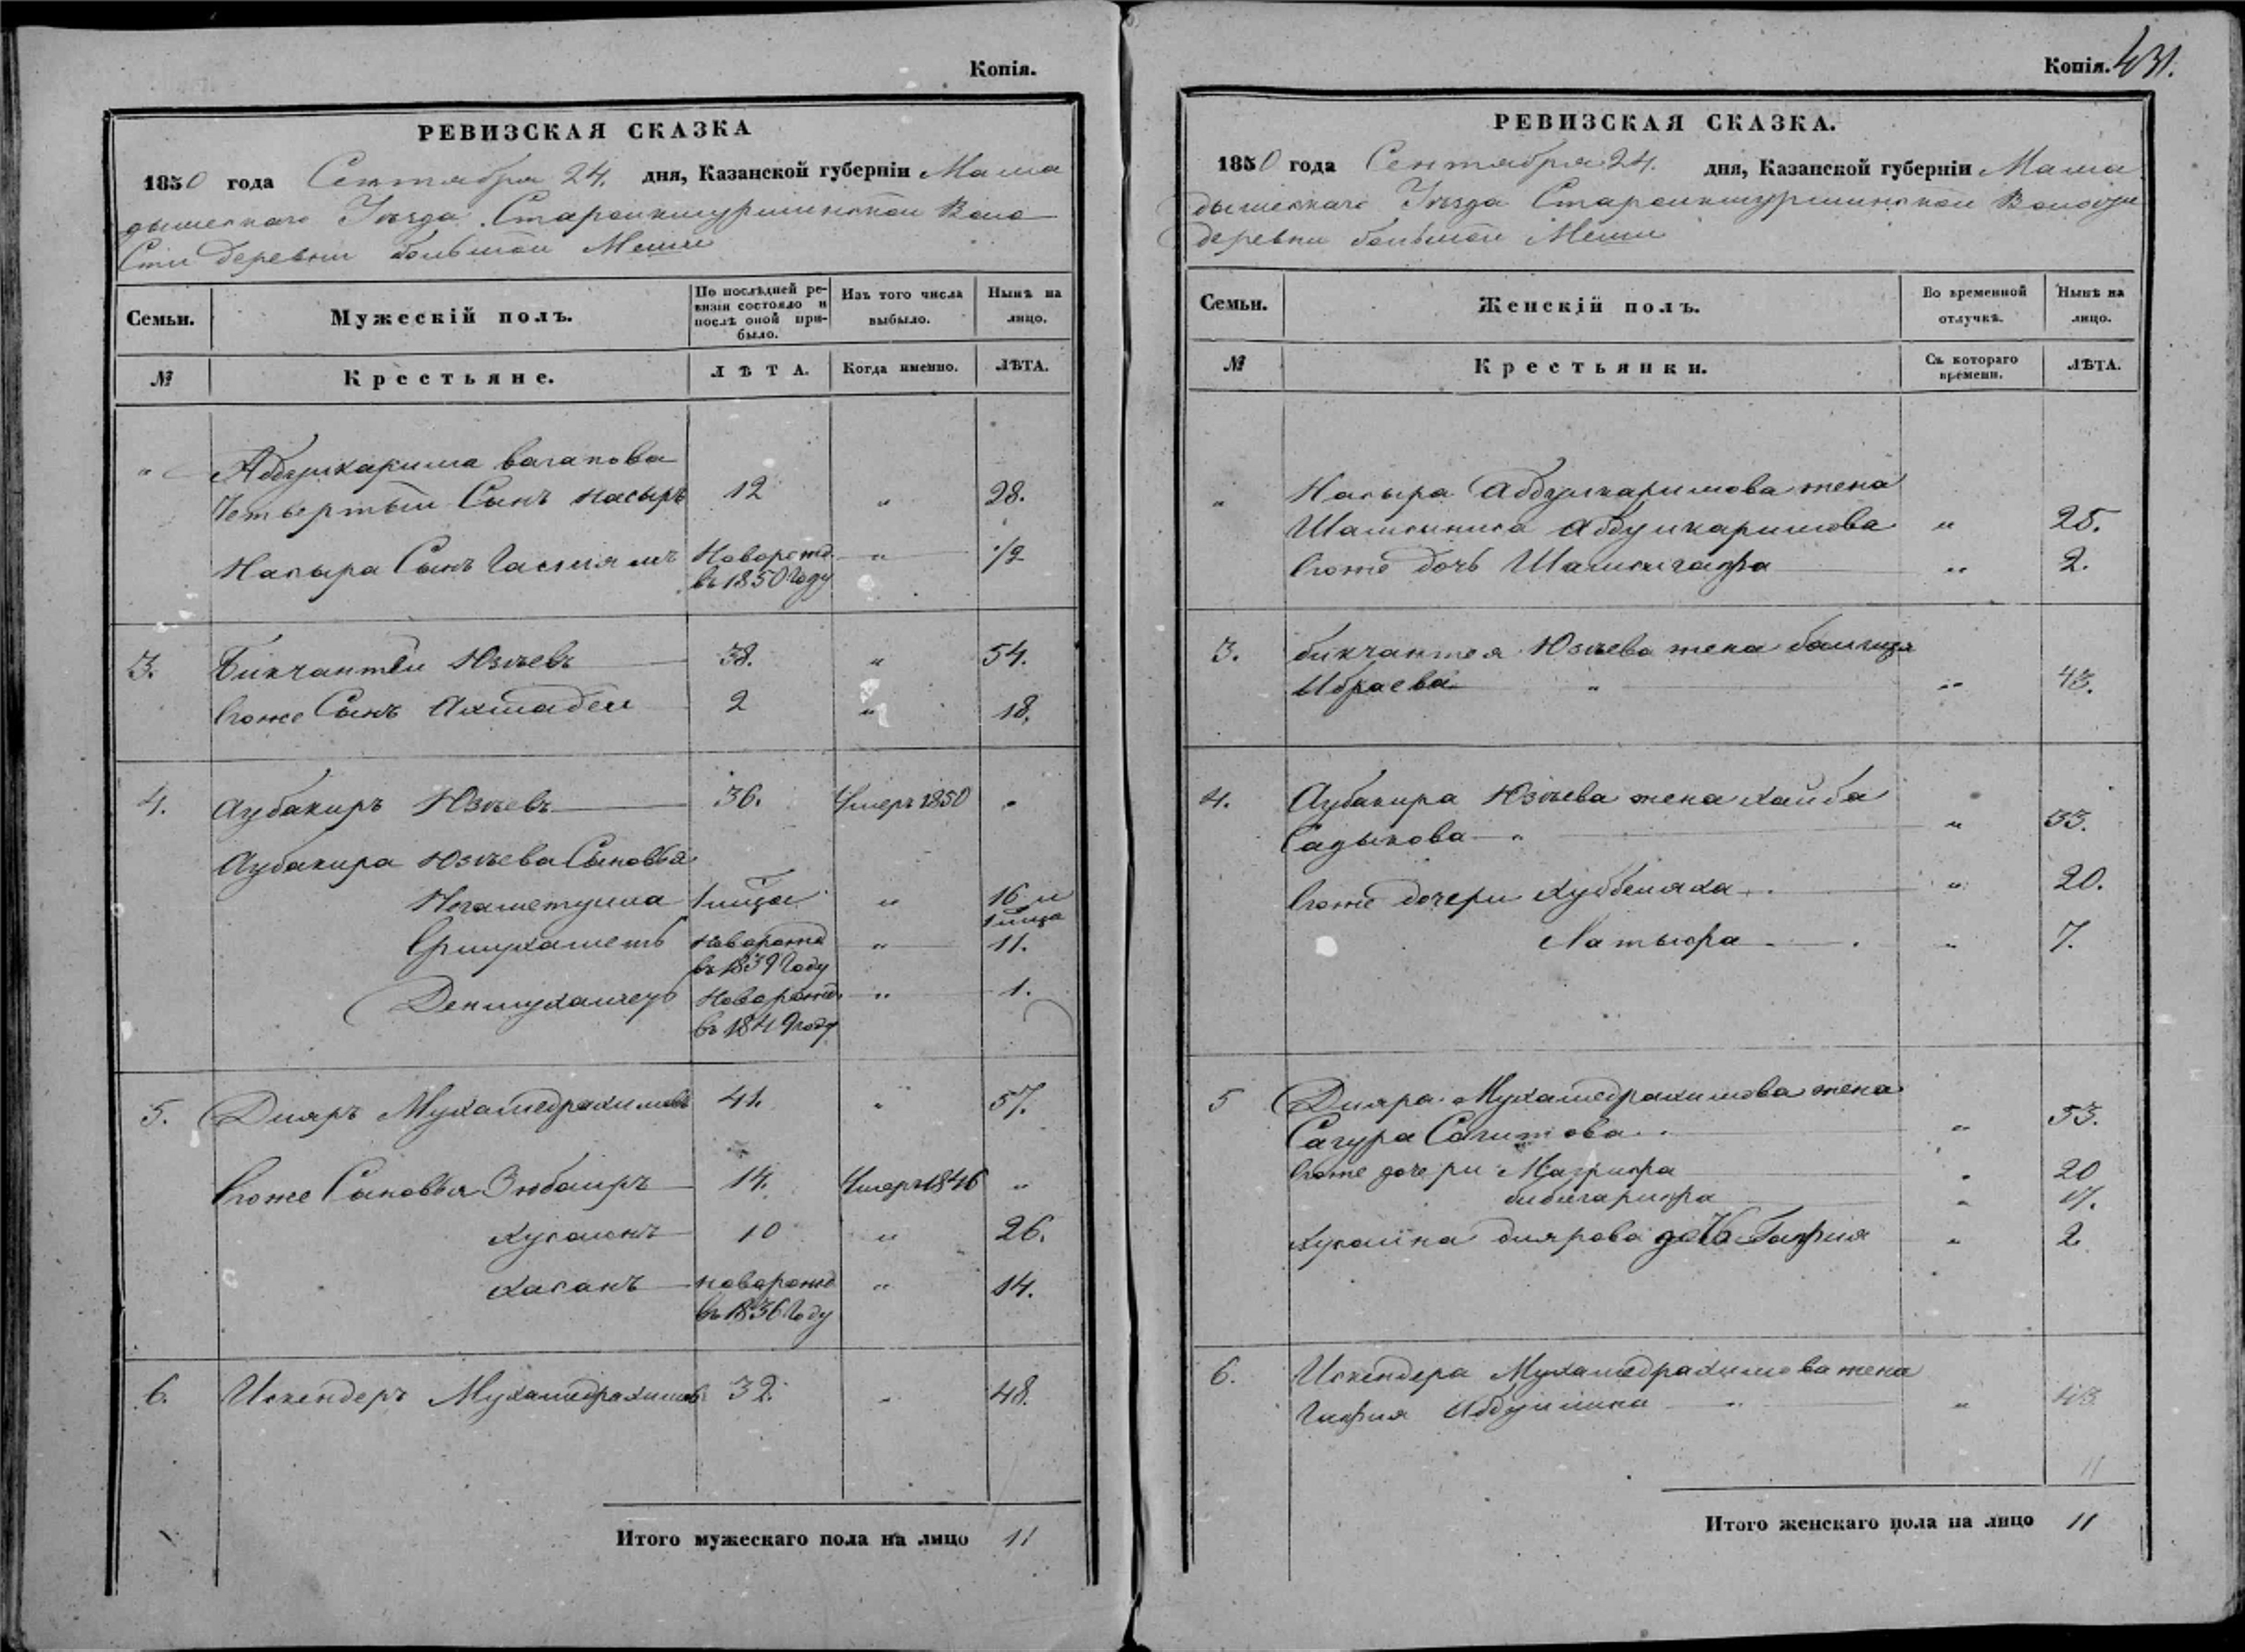 Копія.
РЕВИЗСКАЯ СКАЗКА
1850 года Сентября 24. дня, Казанской губерніи Мама
дышскаго Уѣзда Староикшурминской Воло
сти деревни большой Меши
Семьи.
Мужескій полъ.
По послѣдней ре-
визіи состояло и
послѣ оной при-
было.
Изъ того числа
выбыло.
Нынѣ на
лицо.
№
Крестьяне.
ЛѢТА.
Когда именно.
ЛѢТА.
" Абдулкарима вагапова
Четвертый Сынъ Насыръ 12 " 28.
Насыра Сынъ Новорожд. " 1/2
въ 1850 Году
3. Бикчантей Юзѣевъ 38. " 54.
Егоже Сынъ Ахмадей 2 " 18.
4. Аубакиръ Юзѣевъ 36. Умеръ 1850 "
Аубакира Юзѣева Сыновья
" 16 и
11.
новорожд "
въ 1839 Году
Денмухаметъ Новорожд. " 1.
въ 1849 году
5. Дияръ Мухамедрахимовъ 41. " 57.
Егоже Сыновья Зюбаиръ 14. Умеръ 1846 "
Хусаинъ 10 " 26.
Хасанъ новорожд " 14.
въ 1836 Году
6. Искендеръ Мухамедрахимовъ 32. " 48.
Итого мужескаго пола на лицо 11
Копія. 431.
РЕВИЗСКАЯ СКАЗКА.
1850 года Сентября 24. дня, Казанской губерніи Мама
дышскаго Уѣзда Староикшурминской Волости
деревни большой Меши
Семьи.
Женскій полъ.
Во временной
отлучкѣ.
Нынѣ на
лицо.
№
Крестьянки.
Съ котораго
времени.
ЛѢТА.
" Насыра Абдулкаримова жена
Абдулкаримова " 25.
Егоже дочь " 2.
3. бикчантея Юзѣева жена
Ибраева " " 43.
4. Аубакира Юзѣева жена Хаиба
Садыкова " " 53.
Егоже дочери " 20.
Латыфа " 7.
5 Дияра Мухамедрахимова жена
Сагура Сагитова " 53.
Егоже дочери " 20
бибигарифа " 17.
Хусаина диярова дочь Гафия " 2
6. Искендера Мухамедрахимова жена
Гафия " " 43
11
Итого женскаго пола на лицо 11